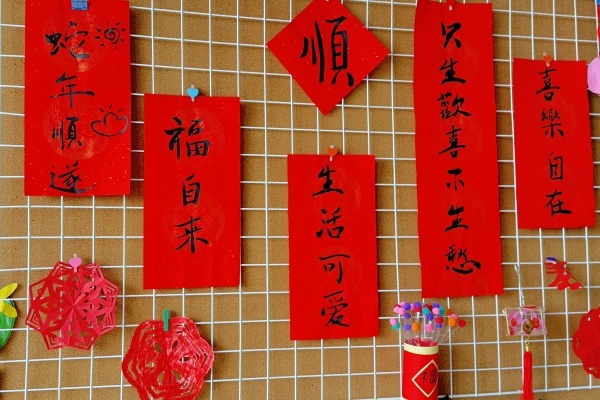 蛇年順遂
福自来
順
生活可爱
只生歡喜不生愁
喜樂自在